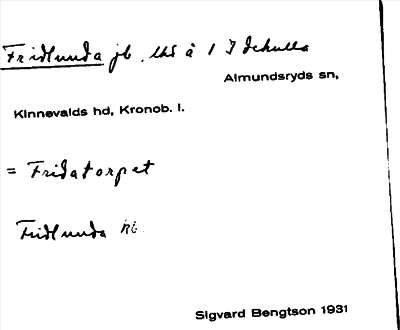 Fridlunda jb. lht å 1 Idehulla
Almundsryds sn,
Kinnevalds hd, Kronob. l.
= Fridatorpet
Fridlunda
Sigvard Bengtson 1931